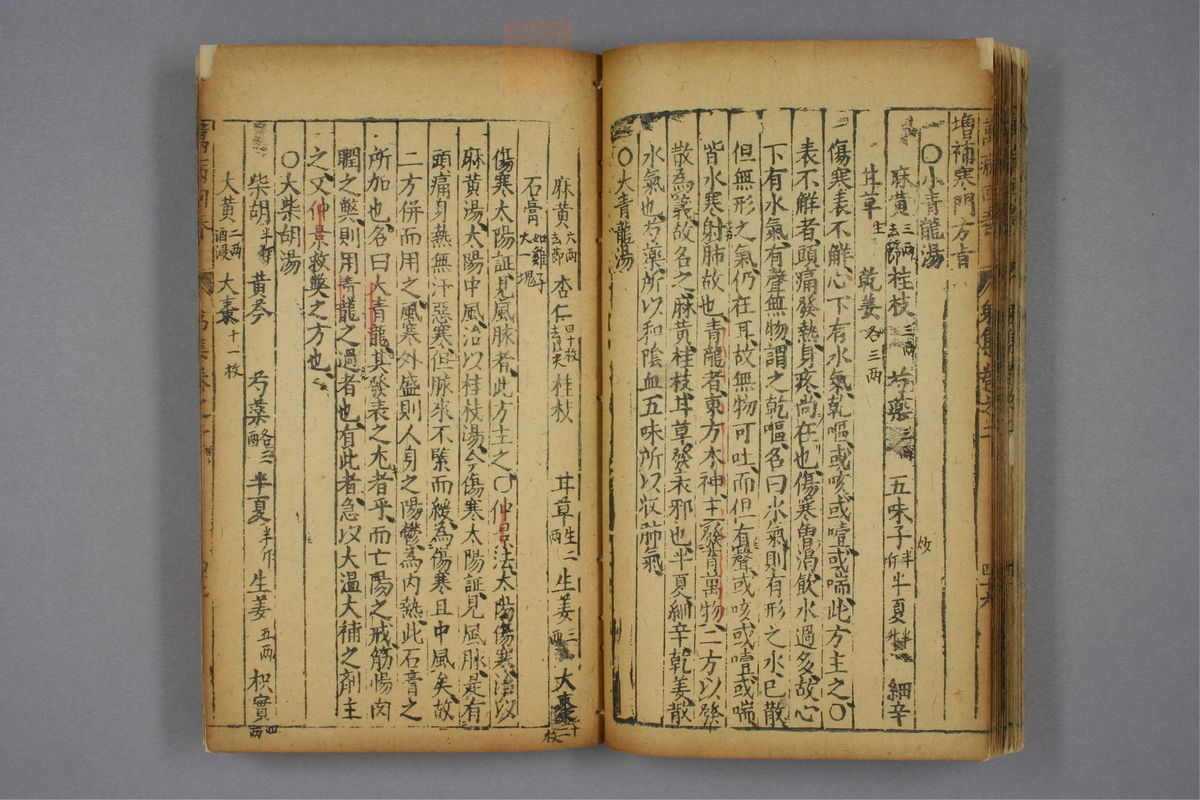 增補寒門方旨
○小青龍湯
麻黄三两去節 桂枝三两 芍藥三两 五味子半斤 炒 半夏半升 細辛
甘草生 乾姜各三两
傷寒表不解心下有水氣乾嘔或咳或噎或喘此方主之○
表不鮮者頭痛發熱身疼尚在也傷寒曽渴飲水過多故心
下有水氣有聲無物謂之乾嘔名曰水氣則有形之水已散
但無形之氣仍在耳故無物可吐而但有聲或咳或噎或喘
皆水寒射肺故也青龍者東方木神主發育萬物二方以發
散為義故名之麻黄桂枝甘草發表邪也半夏細辛乾姜散
水氣也芍藥所以和陰血五味所以收肺氣
○大青龍湯
麻黄六两去節 杏仁四十枚去皮尖 桂枝 甘草生二两 生姜三两 大棗十二枚
石膏如雞子大一塊
傷寒太陽証見風脉者此方主之○仲景法太陽傷寒治以
麻黄湯太陽中風治以桂枝湯今傷寒太陽証見風脉是有
頭痛身熱無汁惡寒但脉來不緊而緩為傷寒且中風矣故
二方併而用之風寒外盛則人身之陽鬱為内熱此石膏之
所加也名曰大青龍其發表之尤者乎而亡陽之戒筋惕肉
瞤之獘則用青龍之過者也有此者急以大温大補之劑主
之又仲景救獘之方也
○大柴胡湯
柴胡半斤 黄芩 芍藥各三两 半夏半斤 生姜五两 枳實四两
大黄二两酒浸 大棗十一枚